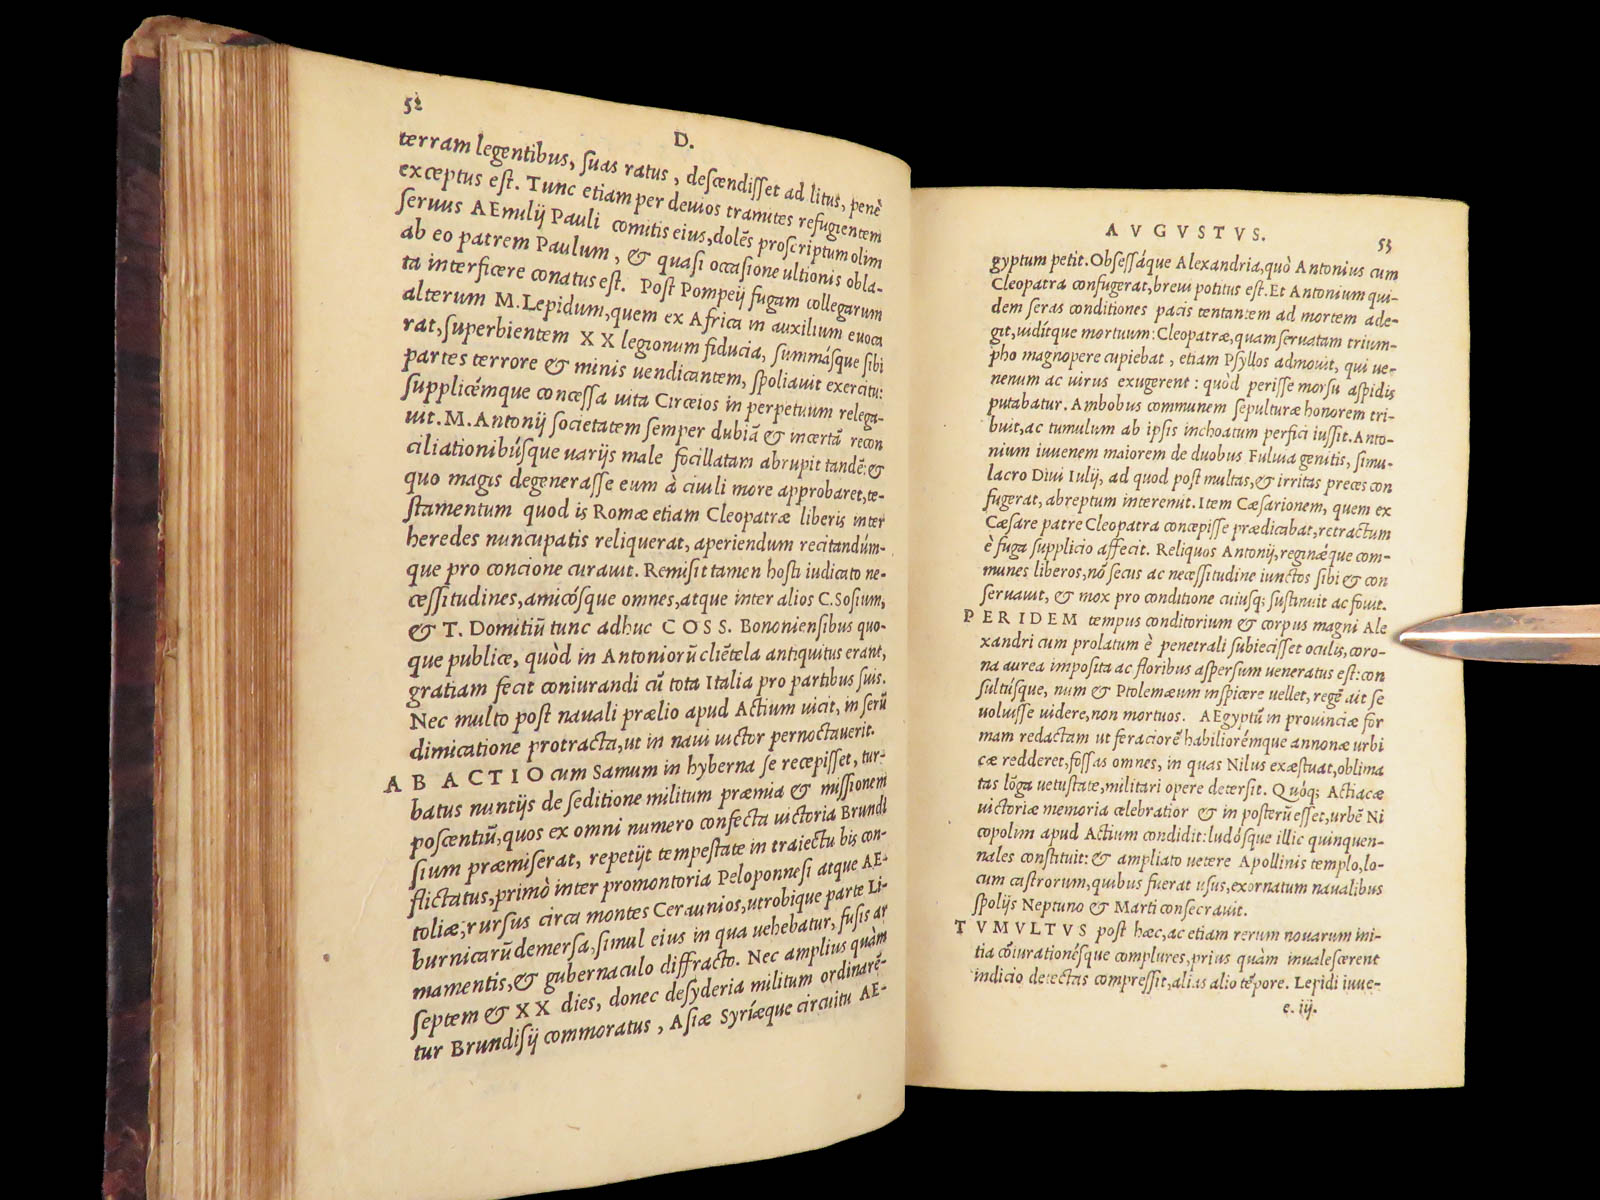 52
D.
terram legentibus, ſuas ratus, deſcendiſſet ad litus, penè
exceptus eſt. Tunc etiam per deuios tramites refugientem
ſeruus AEmilij Pauli comitis eius, dolẽs proſcriptum olim
ab eo patrem Paulum, & quaſi occaſione ultionis obla-
ta interficere conatus eſt. Poſt Pompeij fugam collegarum
alterum M. Lepidum, quem ex Africa in auxilium euoca
rat, ſuperbientem XX legionum fiducia, ſummáſque ſibi
partes terrore & minis uendicantem, ſpoliauit exercitu:
ſupplicémque conceſſa uita Circeios in perpetuum relega-
uit. M. Antonij ſocietatem ſemper dubiã & incertã recon
ciliationibúſque uarijs male focillatam abrupit tandẽ: &
quo magis degeneraſſe eum à ciuili more approbaret, te-
ſtamentum quod is Romæ etiam Cleopatræ liberis inter
heredes nuncupatis reliquerat, aperiendum recitandúm-
que pro concione curauit. Remiſit tamen hoſti iudicato ne-
ceſſitudines, amicóſque omnes, atque inter alios C. Soſium,
& T. Domitiũ tunc adhuc COSS. Bononienſibus quo-
que publice, quòd in Antoniorũ cliẽtela antiquitus erant,
gratiam fecit coniurandi cũ tota Italia pro partibus ſuis.
Nec multo poſt nauali prælio apud Actium uicit, in ſerũ
dimicatione protracta, ut in naui uictor pernoctauerit.
AB ACTIO cum Samum in hyberna ſe recepiſſet, tur-
batus nuntijs de ſeditione militum præmia & miſſionem
poſcentiũ, quos ex omni numero confecta uictoria Brundi
ſium præmiſerat, repetijt tempeſtate in traiectu bis con-
flictatus, primò inter promontoria Peloponneſi atque AE-
toliæ, rurſus circa montes Ceraunios, utrobique parte Li-
burnicarũ demerſa, ſimul eius in qua uehebatur, fuſis ar
mamentis, & gubernaculo diffracto. Nec amplius quàm
ſeptem & XX dies, donec deſyderia militum ordinarẽ-
tur Brundiſij commoratus, Aſiæ Syriæque circuitu AE-
AVGVSTVS.
53
gyptum petit. Obſeſſáque Alexandria, quò Antonius cum
Cleopatra confugerat, breui potitus eſt. Et Antonium qui-
dem ſeras conditiones pacis tentantem ad mortem ade-
git, uidítque mortuum: Cleopatræ, quam ſeruatam trium-
pho magnopere cupiebat, etiam Pſyllos admouit, qui ue-
nenum ac uirus exugerent: quòd periſſe morſu aſpidis
putabatur. Ambobus communem ſepulturæ honorem tri-
buit, ac tumulum ab ipſis inchoatum perfici iuſſit. Anto-
nium iuuenem maiorem de duobus Fuluia genitis, ſimu-
lacro Diui Iulij, ad quod poſt multas, & irritas preces con
fugerat, abreptum interemit. Item Cæſarionem, quem ex
Cæſare patre Cleopatra concepiſſe prædicabat, retractum
è fuga ſupplicio affecit. Reliquos Antonij, reginǽque com-
munes liberos, nõ ſecus ac neceſſitudine iunctos ſibi & con
ſeruauit, & mox pro conditione cuiuſq; ſuſtinuit ac fouit.
PER IDEM tempus conditorium & corpus magni Ale
xandri cum prolatum è penetrali ſubieciſſet oculis, coro-
na aurea impoſita ac floribus aſperſum ueneratus eſt: con
ſultúſque, num & Ptolemæum inſpicere uellet, regẽ ait ſe
uoluiſſe uidere, non mortuos. AEgyptũ in prouinciæ for
mam redactam ut feraciorẽ habiliorémque annonæ urbi
cæ redderet, foſſas omnes, in quas Nilus exæſtuat, oblima
tas lõga uetuſtate, militari opere deterſit. Quóq; Actiacæ
uictoriæ memoria celebratior & in poſterũ eſſet, urbẽ Ni
copolim apud Actium condidit: ludóſque illic quinquen-
nales conſtituit: & ampliato uetere Apollinis templo, lo-
cum caſtrorum, quibus fuerat uſus, exornatum naualibus
ſpolijs Neptuno & Marti conſecrauit.
TVMVLTVS poſt hæc, ac etiam rerum nouarum ini-
tia cõiurationéſque complures, prius quàm inualeſcerent
indicio detectas compreſſit, alias alio tẽpore. Lepidi iuue-
e. iij.